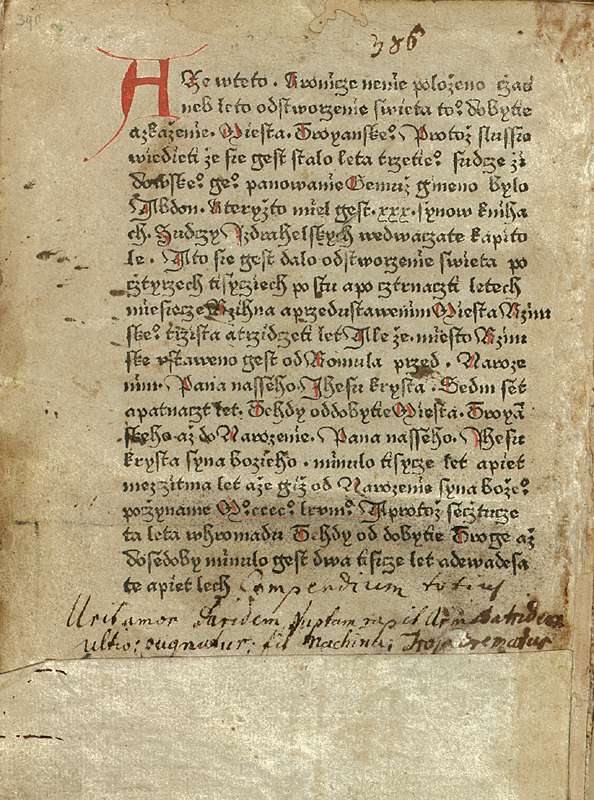 390
386
A Ze wteto . Kronicze nenie położeno čas
neb leto odstworzenie swieta toº dobytie
azkaženie . Miesta . Troyanskeº Protož slussie
wiedieti že sie gest stalo leta trzetieº sudcze ži
dowskeº geº panowanie Gemuž gmeno bylo
Abdon . Kteryžto miel gest . xxx . synow kniha
ch . Sudczy Izdrahelskych wedwaczate kapito
le . A to sie gest dalo odstworzenie swieta po
cžtyrzech tisycziech po stu apo cztrnaczti letech
miesiecze aprzedustawenim Miesta Rzim
skeº trzista atrzidczeti let Ale že miesto Rzim
ske vstaweno gest od Romula przed . Naroze
nim . Pana nasseho Jhesu krysta . Sedm set
apatnaczt let . Tehdy oddobytie Miesta . Troyā
skeho až do Narozenie . Pana nasseho . Jhesu
krysta syna bozieho . minulo tisycze let apiet
mezzitma let aže giž od Narozenie syna božeº
požynanie Mºccccº lxviiiº A protož secžtucze
ta leta whromadu Tehdy od dobytie Troge až
dosedoby minulo gest dwa tisicze let adewadesa
te apiet lech Compendium totius
Urit amor Paridem, nuptam rapit, Atridem
ultio; pugnatur; fit Machina; Troja crematur